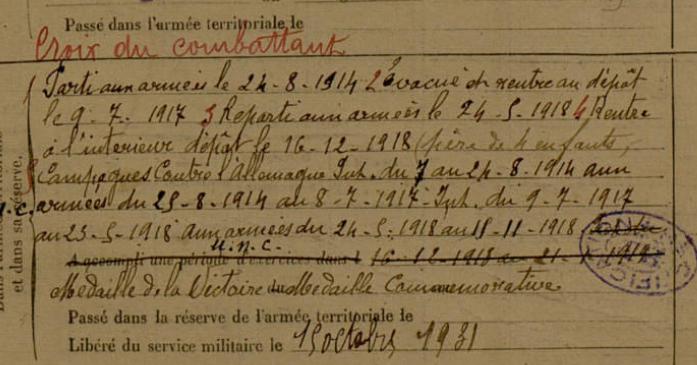 Passé dans l'armée territoriale le
Croix du combattant
1 Parti aux armées le 24-8-1914 2 Evacué et rentré au dépôt
le 9-7-1917 3 Reparti aux armées le 24-5-1918 4 Rentré
à l'intérieur dépôt le 16-12-1918 (père de 4 enfants)
Campagnes Contre l'Allemagne Int. du 7 au 24-8-1914 aux
armées du 25-8-1914 au 8-7-1917 - Int. du 9-7-1917
au 23-5-1918 aux armées du 24-5-1918 au 11-11-1918
U.N.C.
A accompli une période d'exercices dans l 16-12-1918 au 21-
Médaille de la Victoire Médaille Commémorative
Passé dans la réserve de l'armée territoriale le
Libéré du service militaire le 15 octobre 1931
et dans sa réserve.